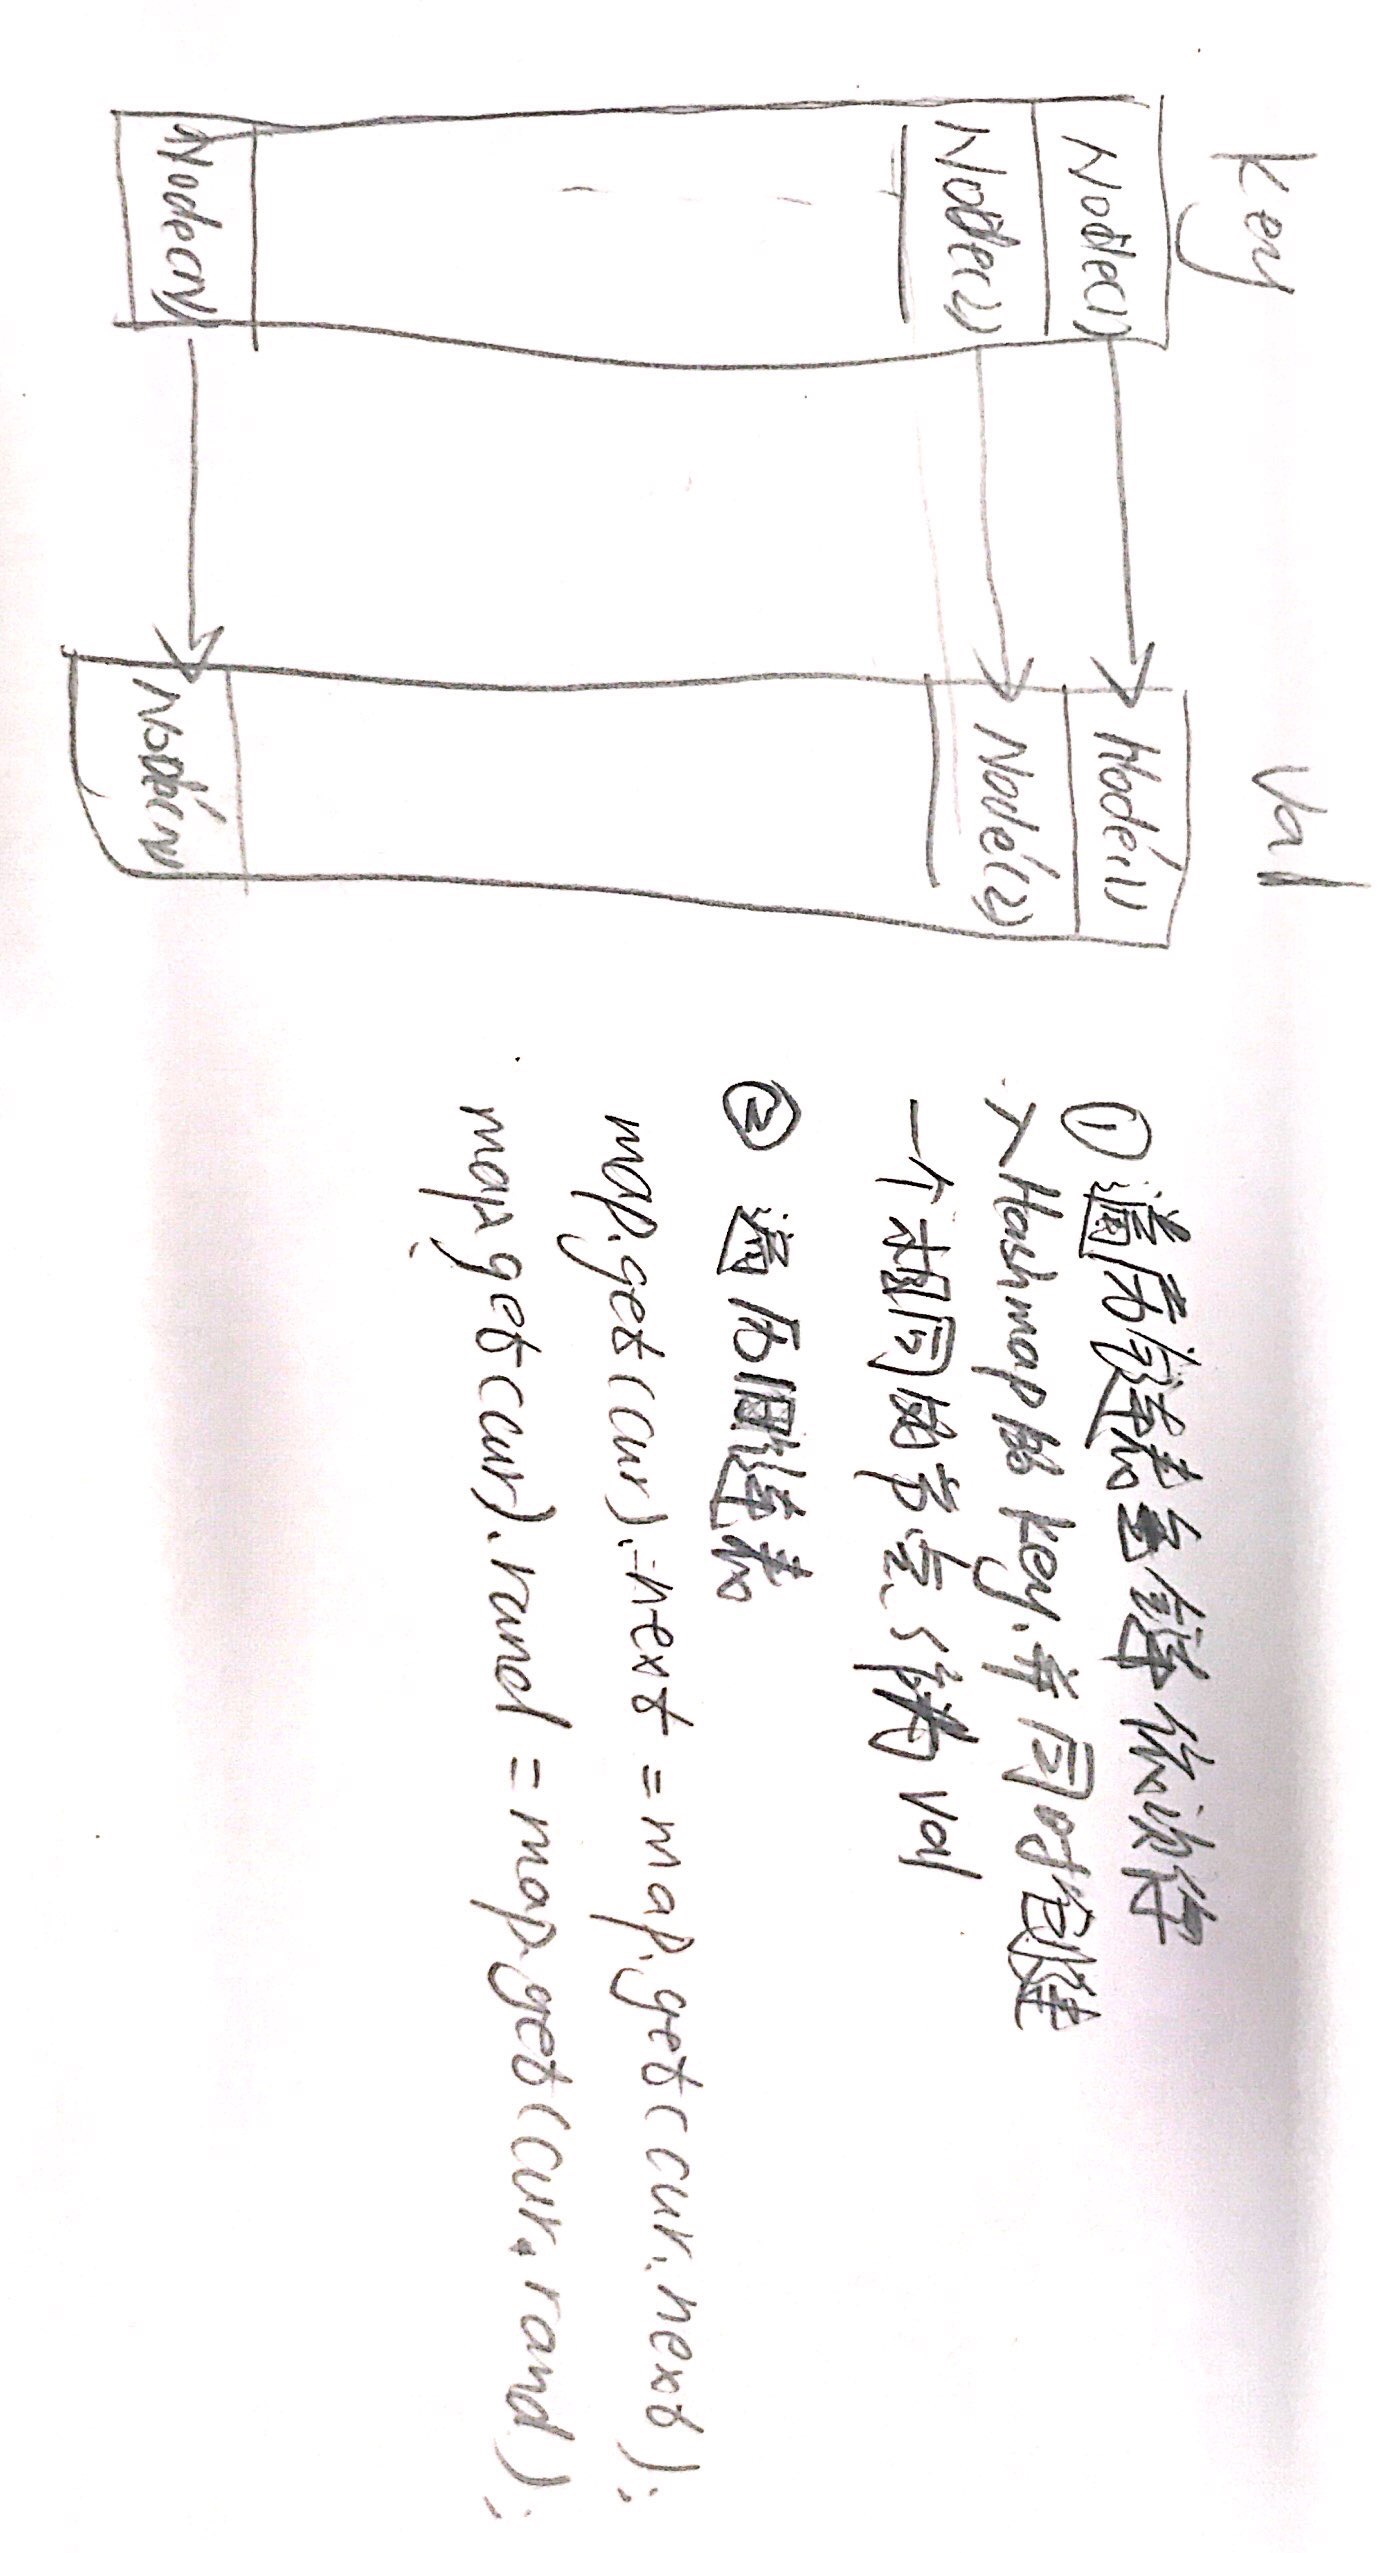 key
val
Node(1)
Node'(1)
Node(2)
Node'(2)
Node(N)
Node'(N)
① 遍历链表 依次存
入Hashmap的 key,并同时创建
一个相同的节点作为 val
② 遍历旧链表
map.get(cur).next = map.get(cur.next);
map.get(cur).rand = map.get(cur.rand);